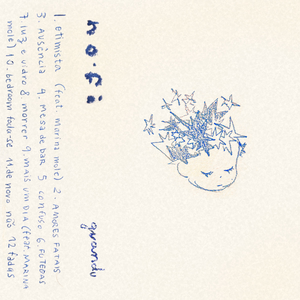 no.fi
1. otimista (feat. marina mole) 2. AMORES FATAIS
3. Ausência 4. mesa de bar 5 confuso 6
7. luz e vidro 8 morrer 9. mais um dia (feat. MARINA
mole) 10. bedroom 11 de novo não 12 fadas